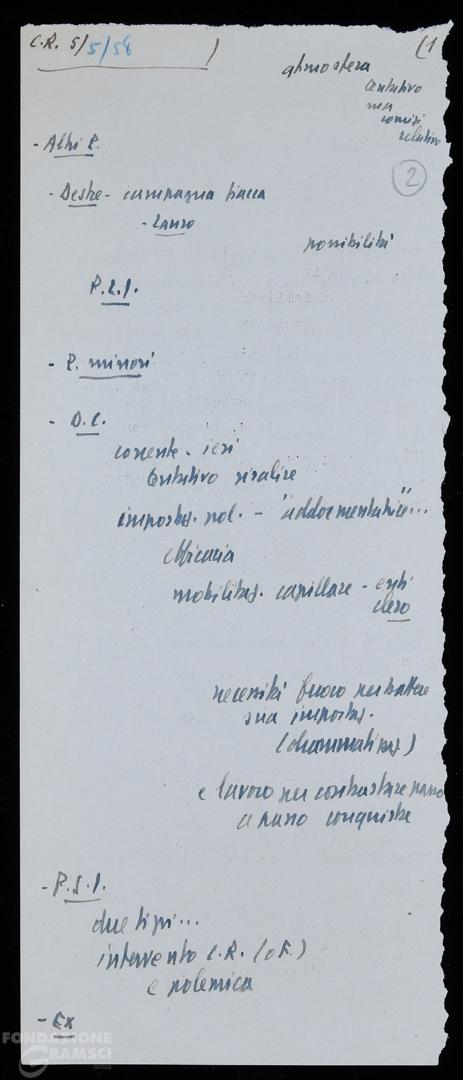 C.R. 5/5/58 ) (1
atmosfera
tentativo
ma
comizi
relativo
- Altri P.
2
- Destre - campagna fiacca
- Lauro
possibilità
P.L.I.
- P. minori
- D.C.
corrente - ieri
tentativo risalire
impostaz. pol. - "addormentatrice"...
efficacia
mobilitaz. capillare - enti
clero
necessità fuoco per battere
sua impostaz.
(drammatizzaz.)
e lavoro per contrastare passo
a passo conquiste
- P.S.I.
due tipi...
intervento C.R. (o F.)
e polemica
- Ex
FONDAZIONE
GRAMSCI
onlus